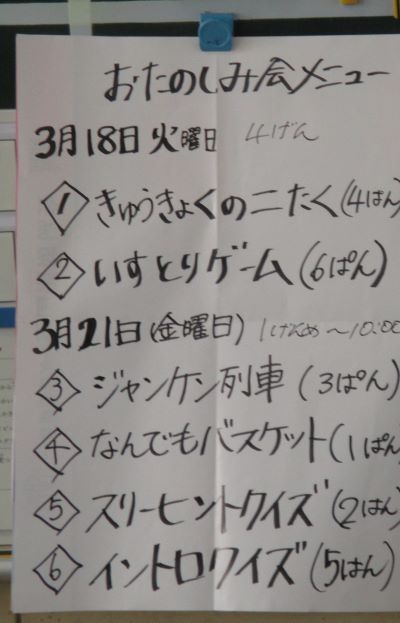 おたのしみ会メニュー
3月18日火曜日 4げん
1 きゅうきょくの二たく(4はん)
2 いすとりゲーム(6ぱん)
3月21日(金曜日) 1げんめ～10:00
3 ジャンケン列車(3ぱん)
4 なんでもバスケット(1ぱん
5 スリーヒントクイズ(2はん)
6 イントロクイズ(5はん)